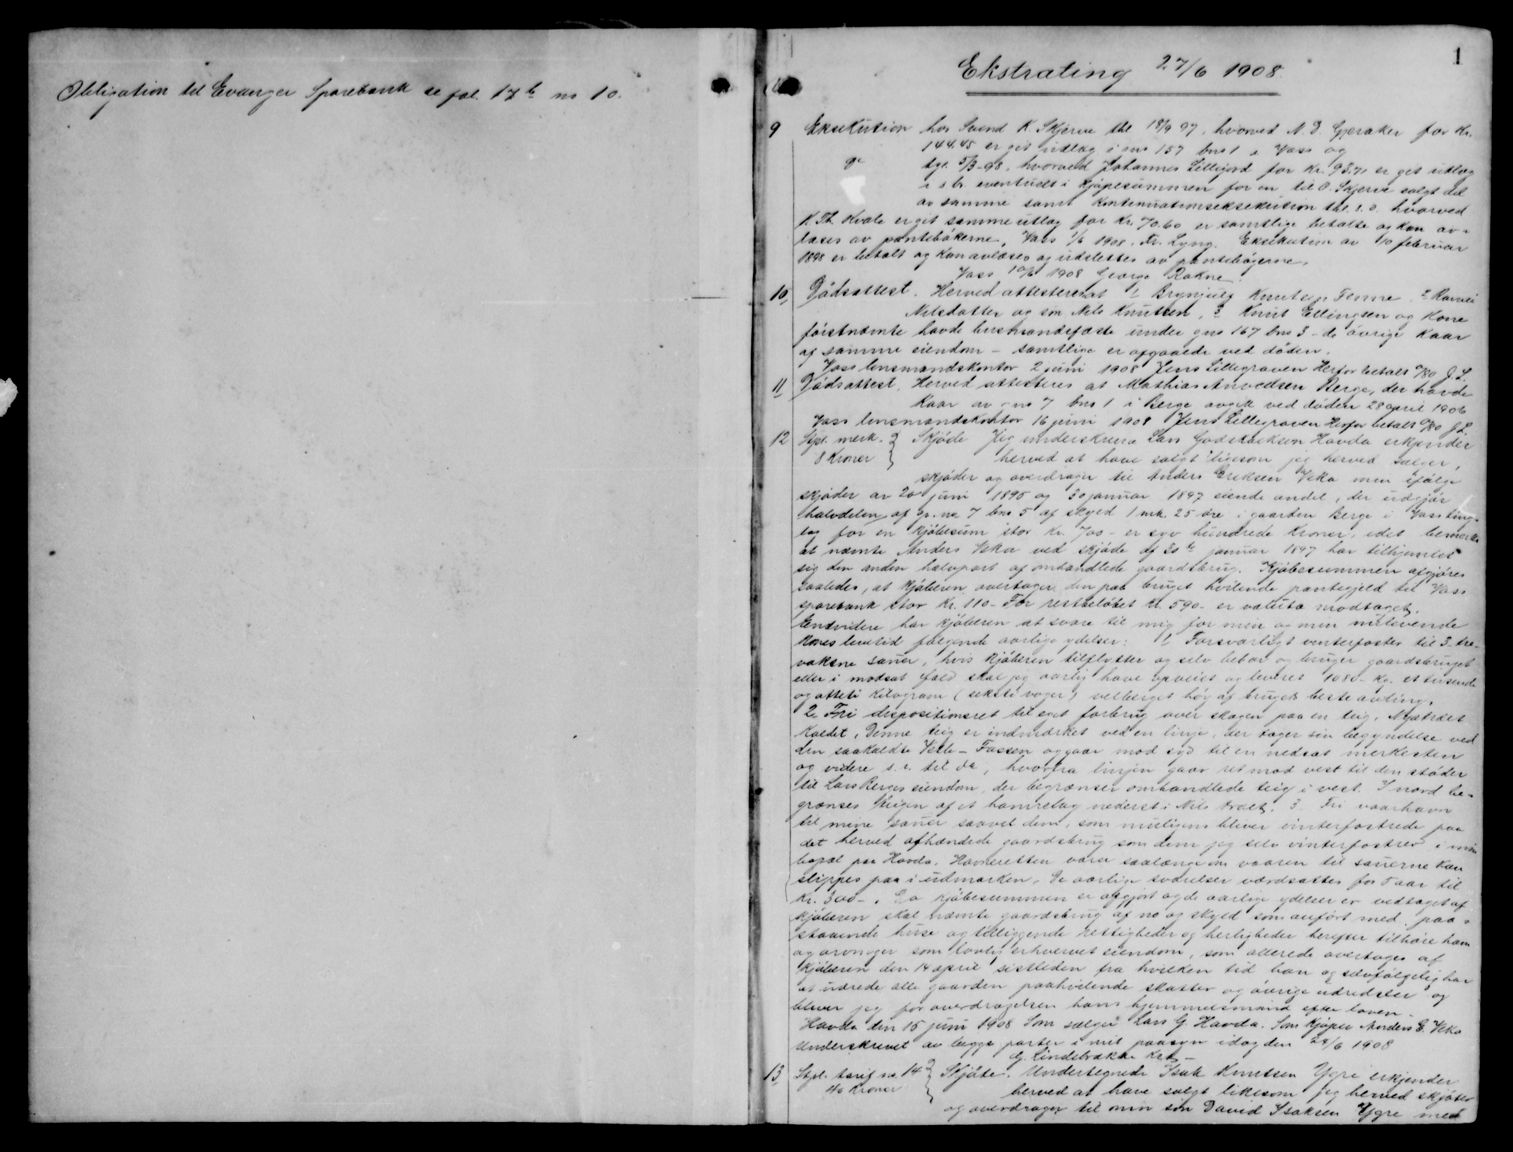 Obligation til Evanger Sparebank se fol. 17b no 10.
1
Ekstrating 27/6 1908
9 Eksekution hos Svend K. Skjerve thl. 18/9 97, hvorved N. D. Gjeraker for Kr.
144.45 er git utlæg i gno 157 bno 1 i Vass og
do dgl. 5/3-98, hvorved Johannes Lillefjord for Kr. 93.71 er git utlæg
i s. br. eventuelt i kjøpesummen for en til O. Skjerve solgt del
av samme samt Kontinuationseksekution thl. s. d. hvorved
K. Th. Hvale er git samme utlæg for Kr. 70.60 er samtlige betalte og kan av-
læses av pantebökerne, Vass 1/6 1908. Fr. Lyng. Eksekution av 10 februar
1898 er betalt og kan avlæses og udslettes av pantebögerne.
Vass 10/6 1908 George Rokne
10 Dödsattest. Herved attesteres at 1 Brynjulf Knutsen Tenne 2 Ranvei
Nilsdatter og søn Nils Knutsen, 3 Knut Ellingsen og Kone
förstnævnte havde husmandsfæste under gno 167 bno 3 - de övrige Kaar
af samme eiendom - samtlige er afgaaede ved döden.
Vass lensmandskontor 2 juni 1908 Jens Lillegraven Herfor betalt 0/80 J. L.
11 Dödsattest. Herved attesteres at Mathias Anvedsen Berge, der havde
Kaar av gno 7 bno 1 i Berge avgik ved döden 28 april 1906
Vass lensmandskontor 16 juni 1908 Jens Lillegraven Herfor betalt 0/80 J. L.
12 Stpl. merk. 8 Kroner } Skjöde Jeg underskrevne Lars Godskalksen Havda erkjender
herved at have solgt ligesom jeg herved sælger,
skjöder og overdrager til Anders Eriksen Veka min ifølge
skjöder av 20 juni 1895 og 30 januar 1897 eiende andel, der udgjör
halvdelen af gr. no 7 bno 5 af skyld 1 mk. 25 öre i gaarden Berge i Vass ting-
lag for en kjöbesum stor Kr. 700 - er syv hundrede Kroner, idet bemerkes
at nævnte Anders Veka ved skjöde af 30te januar 1897 har tilhjemlet
sig den anden halvpart af omhandlede gaardsbrug. Kjöbesummen afgjöres
saaledes, at kjöberen overtager den paa bruget hvilende pantegjeld til Vass
sparebank stor Kr. 110 - For restbelöbet kr. 590 - er valuta modtaget.
Endvidere har kjöberen at svare til mig for min og min nulevende
Kones levetid fölgende aarlige ydelser: 1 Forsvarligt vinterfoster til 3 tre
voksne sauer, hvis kjöberen tilflytter og selv bebor og bruger gaardsbruget
eller i modsat fald skal jeg aarlig have opveiet og leveret 1080 - kg. et tusende
og otteti kilogram (seksti voger) velberget höy af brugets beste avling.
2 Fri dispositionsret til eget forbrug over skogen paa en teig, Myrtræet
kaldet. Denne teig er indmerket ved en linje, der tager sin begyndelse ved
den saakaldte Vetle - Fossen og gaar mod syd til en nedsat merkesten
og videre s. r. til do, hvorfra linjen gaar ret mod vest til den støder
til Lars Berges eiendom, der begrænser omhandlede teig i vest. I nord be-
grænses teigen af et hamrelag nederst i Nils træet. 3 Fri vaarhavn
til mine sauer saavel dem, som muligens bliver vinterfostrede paa
det herved afhændede gaardsbrug som dem jeg selv vinterfostrer i min
bopæl paa Havda. Havneretten varer saalænge om vaaren til sauerne kan
slippes paa i udmarken. De aarlige svarelser værdsættes for 5 aar til
Kr. 300 -. Da kjöbesummen er afgjort og de aarlige ydelser er vedtaget af
kjöberen skal nævnte gaardsbrug af no og skyld som anfört med paa-
staaende huse og tilliggende rettigheder og herligheder herefter tilhöre ham
og arvinger som lovlig erhvervet eiendom, som allerede overtages af
kjöberen den 14 april sistleden fra hvilken tid han og selvfølgelig har
at udrede alle gaarden paahvilende skatter og övrige udredsler og
bliver jeg for overdragelsen hans hjemmelsmand efter loven.
Havda den 15 juni 1908 Som sælger Lars G. Havda. Som kjöper Anders E. Veka
Underskrevet av begge parter i mit paasyn idag den 24/6 1908
G. Lindebrække
13 Stpl. tarif no 14 40 Kroner } Skjöte. Undertegnede Isak Knutsen Ygre erkjender
herved at have solgt likesom jeg herved skjöter
og overdrager til min sön David Isaksen Ygre med